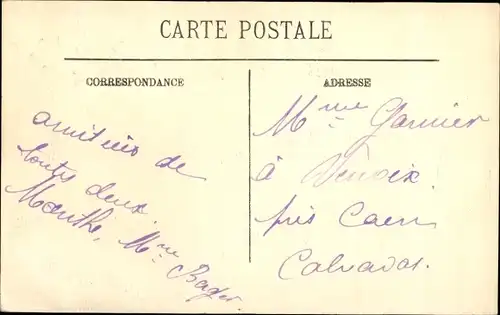 CARTE POSTALE
CORRESPONDANCE
amitiés de
toutes deux
Marthe, Mme
ADRESSE
Mme Garnier
à Venoix
près Caen
Calvados.